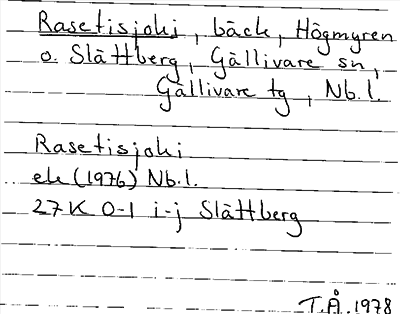 Rasetisjoki, bäck, Högmyren
o. Slättberg, Gällivare sn,
Gällivare tg, Nb.l.
Rasetisjoki
ek (1976) Nb.l.
27K 0-1 i-j Slättberg
T.Å. 1978